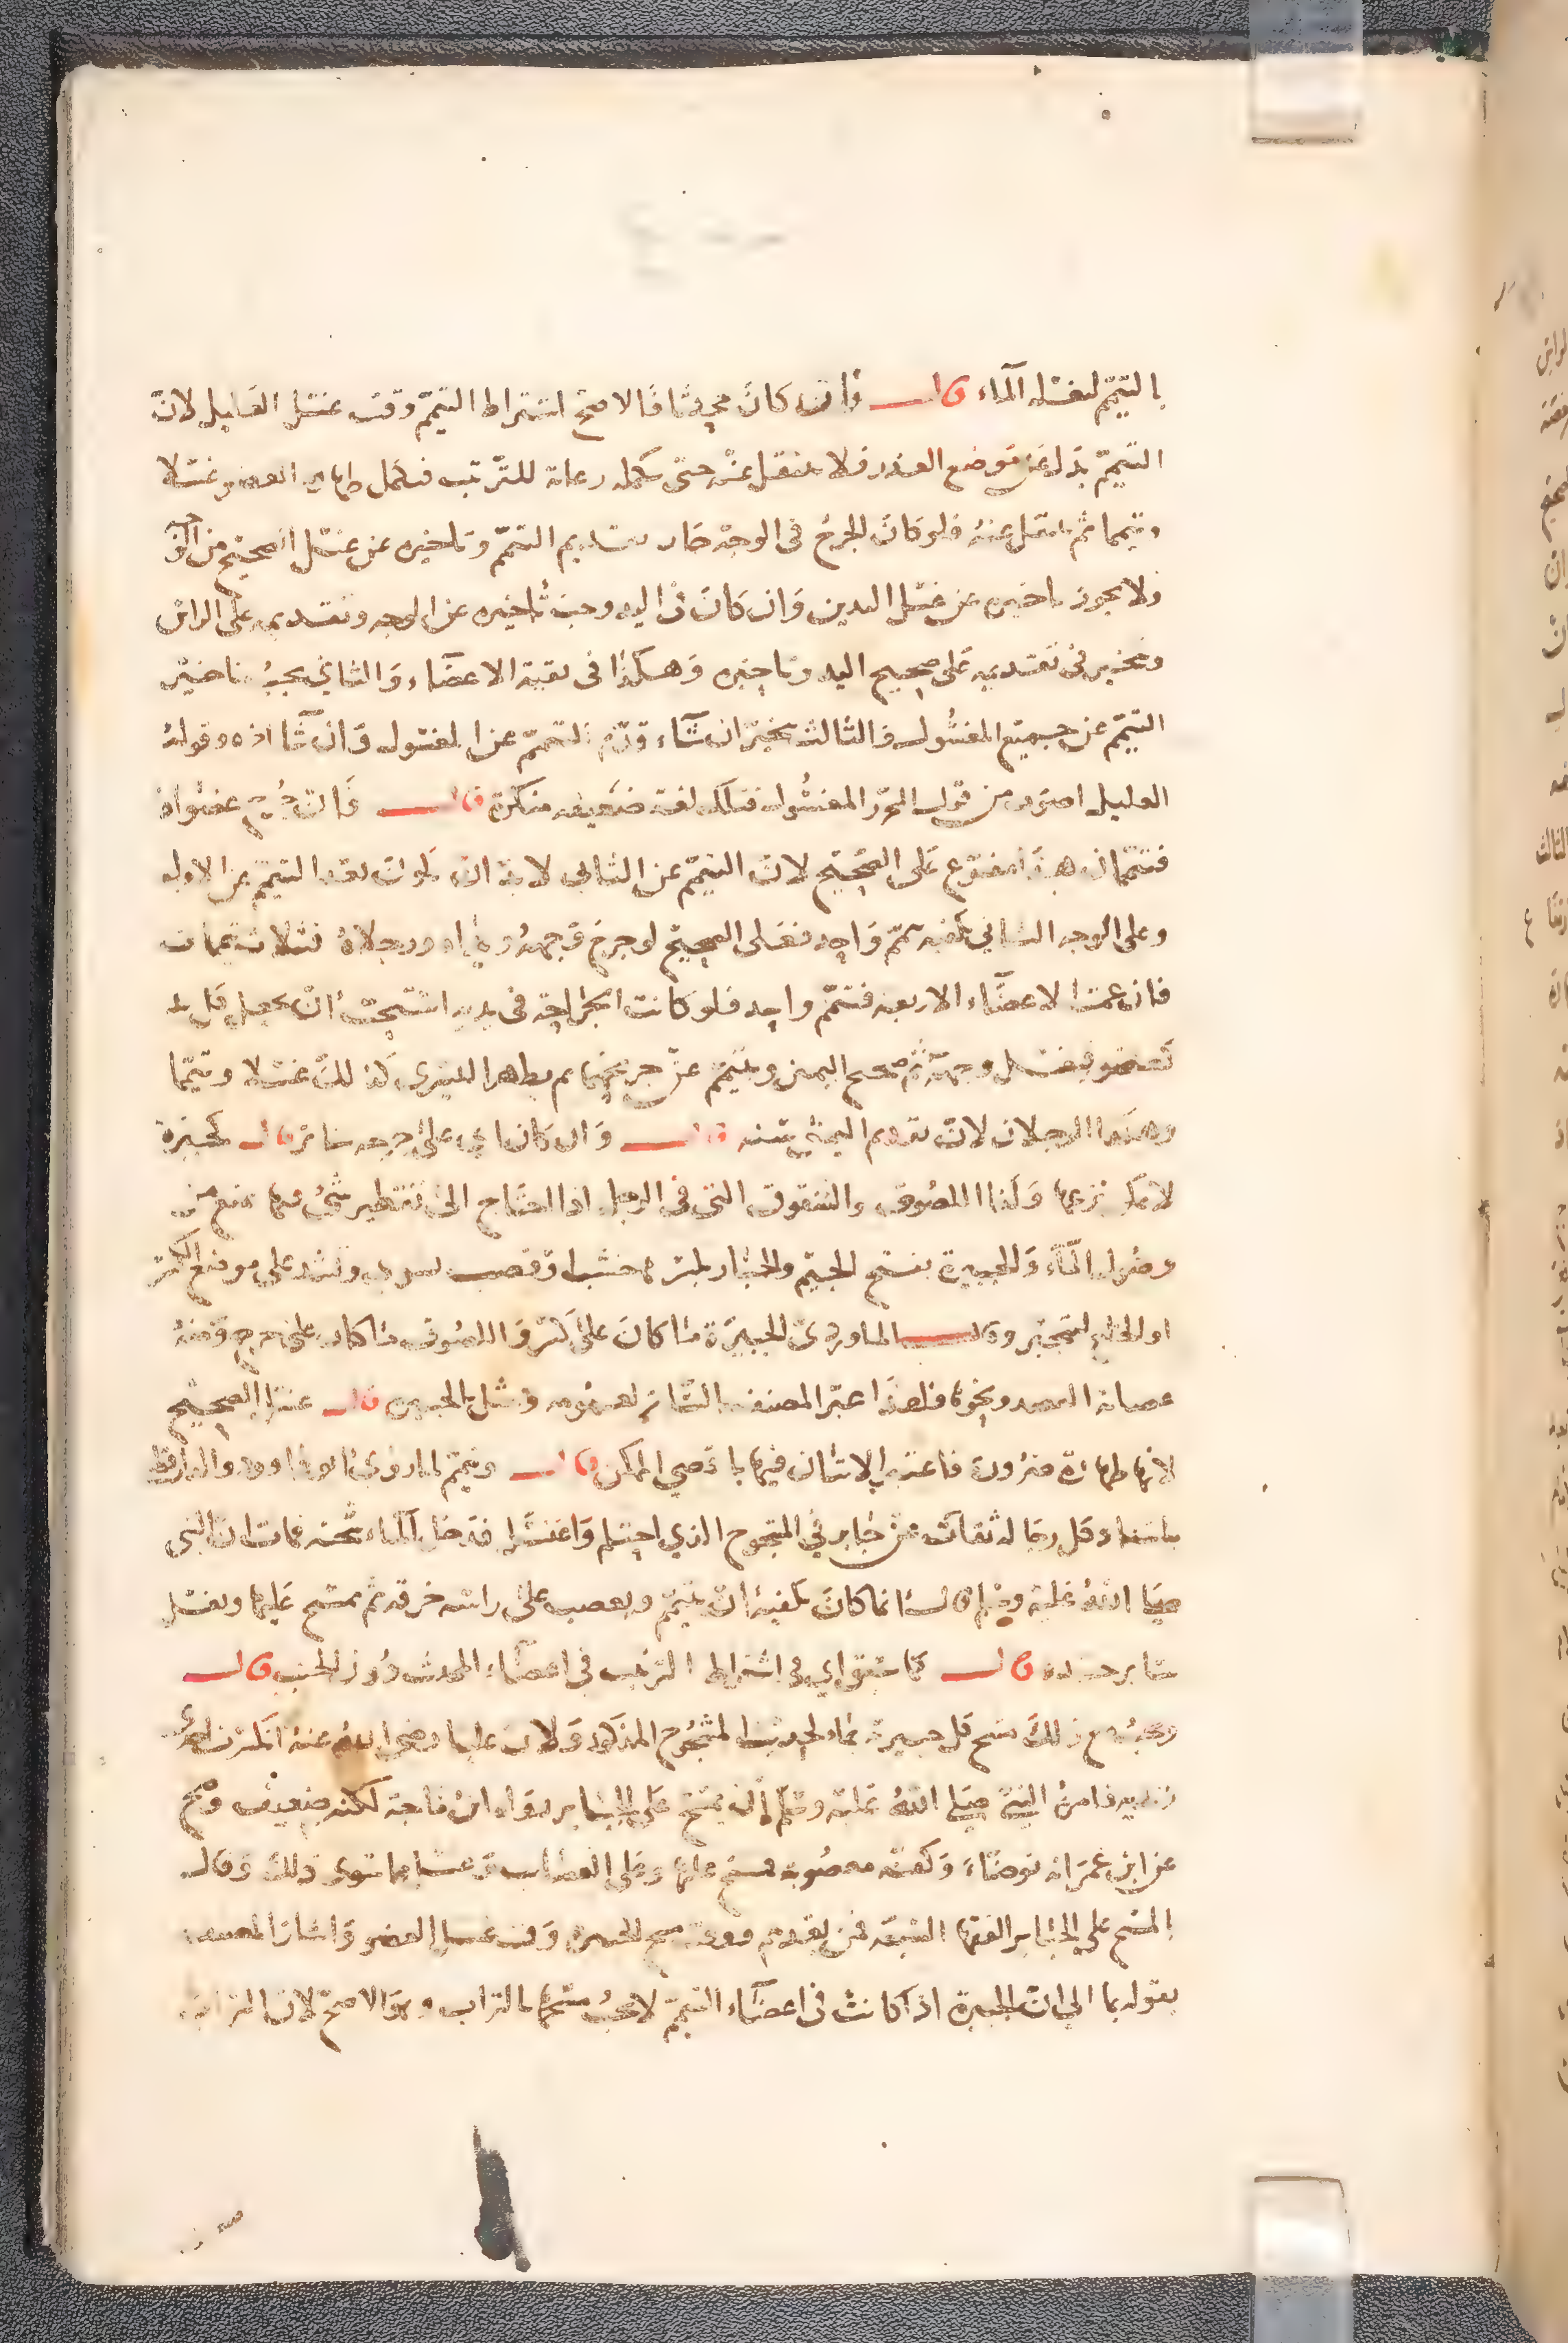 بالتيمم لغسله الماء قال فان كان محدثا فالاصح اشتراط التيمم وقت غسل العليل لان
التيمم بدل عن موضع العذر فلا ينتقل عنه حتى يكمله رعاية للترتيب فيكمل طهارة العضو غسلا
وتيمما ثم ينتقل عنه فلو كان الجرح في الوجه جاز تقديم التيمم وتاخيره عن غسل الصحيح من الوجه
ولا يجوز تاخيره عن غسل اليدين وان كان في اليد وجب تاخيره عن الوجه وتقديمه على الراس
ويتخير في تقديمه على صحيح اليد وتاخيره وهكذا في بقية الاعضاء والثاني يجب تاخير
التيمم عن جميع المغسول والثالث يتخير ان شاء قدم التيمم عن المغسول وان شا اخره وقوله
العليل اصوب من قول المحرر المغسول فتلك لغة ضعيفة منكرة قال فان جرح عضواه
فتيممان هذا مفرع على الصحيح لان التيمم عن الثاني لا بد ان يكون بعد التيمم عن الاول
وعلى الوجه الثاني يكفيه تيمم واحد فعلى الصحيح لو جرح وجهه ويداه ورجلاه فثلاث تيممات
فان عمت الاعضاء الاربعة فتيمم واحد فلو كانت الجراحة في يديه استحب ان يجعل كل يد
كعضو فيغسل وجهه ثم صحيح اليمنى ويتيمم عن جريحها ثم يطهر اليسرى كذلك غسلا وتيمما
وهكذا الرجلان لان تقديم اليمنى سنة قال وان كان اي على جرحه ساتر قال كجبيرة
لا يمكن نزعها وكذا اللصوق والشقوق التي في الرجل اذا احتاج الى تقطير شئ فيها يمنع من
وصول الماء والجبيرة بفتح الجيم والجبار بكسرها خشب او قصب يسوى ويشد على موضع الكسر
او الخلع لينجبر وقال الماوردي الجبيرة ما كان على كسر واللصوق ما كان على جرح ومنه
عصابة الفصد ونحوها فلهذا عبر المصنف بالساتر لعمومه ومثل بالجبيرة قال غسل الصحيح
لانها طهارة ضرورة فاعتبر الاتيان فيها باقصى الممكن قال ويتيمم لما روى ابو داود والدارقطني
باسناد كل رجاله ثقات عن جابر في المشجوج الذي احتلم واغتسل فدخل الماء شجته فمات ان النبي
صلى الله عليه وسلم قال انما كان يكفيه ان يتيمم ويعصب على راسه خرقة ثم يمسح عليها ويغسل
سائر جسده قال كما سبق اي في اشتراط الترتيب في اعضاء المحدث دون الجنب قال
ويجب مع ذلك مسح كل جبيرته بماء لحديث المشجوج المذكور ولان عليا رضي الله عنه انكسر احدى
زنديه فامره النبي صلى الله عليه وسلم ان يمسح على الجبائر رواه ابن ماجة لكنه ضعيف وصح
عن ابن عمر انه توضأ وكفه معصوبة فمسح عليها وعلى العصاب وغسل ما سوى ذلك وقال
المسح على الجبائر الفقهاء السبعة فمن بعدهم ووقت مسح الجبيرة وقت غسل العضو واشار المصنف
بقوله بما الى ان الجبيرة اذا كانت في اعضاء التيمم لا يجب مسحها بالتراب وهو الاصح لان التراب